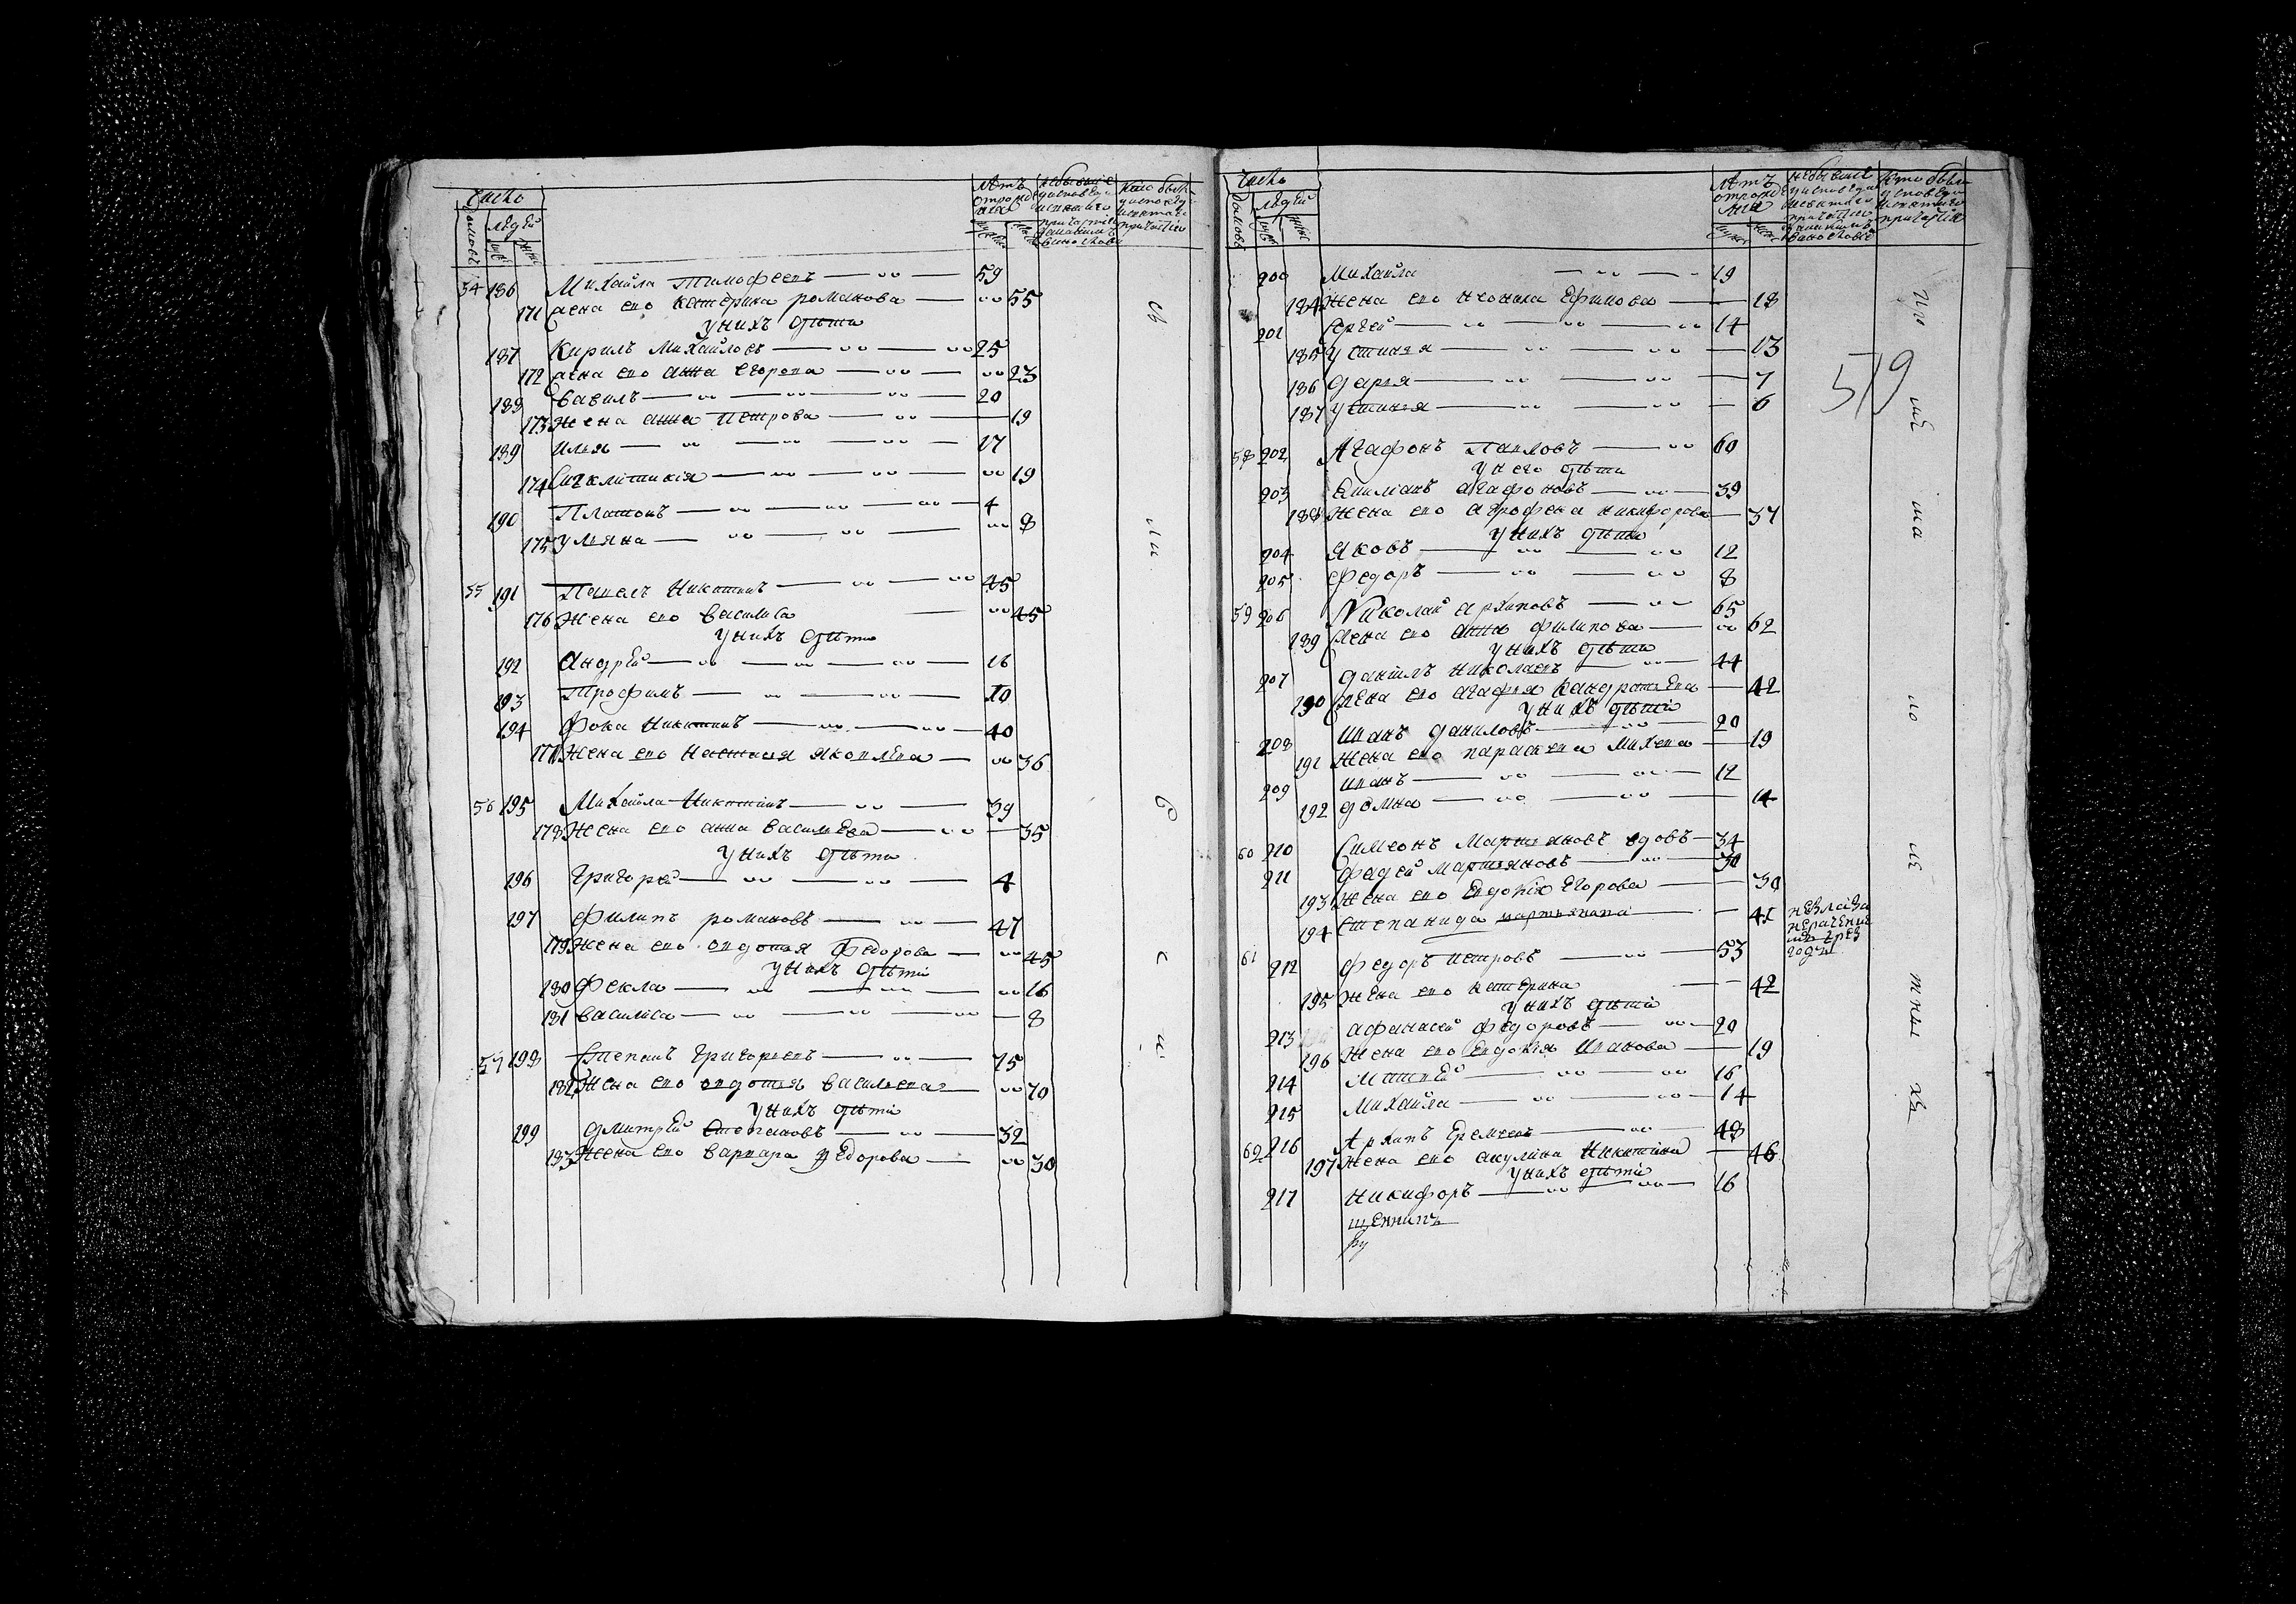 число
домовъ людей
муж жен
Лѣтъ отрожденія
муж жен
54 186 Михайла Тимофеевъ 59
171 жена ево катерина романова 55
у нихъ дѣти
187 Кирилъ Михайловъ 25
172 жена ево анна егорова 23
188 вавилъ 20
173 жена анна петрова 19
189 илья 17
174 Сигклитикія 19
190 Платонъ 4
175 ульяна 8
55 191 Павелъ Никитинъ 45
176 жена ево василиса 45
у нихъ дѣти
192 андрей 16
193 Трофимъ 10
194 фока никитинъ 40
177 жена ево настасья яковлева 36
56 195 Михайла никитинъ 39
178 жена ево анна василева 35
у нихъ дѣти
196 григорей 4
197 филипъ романовъ 47
179 жена ево овдотья федорова 45
у нихъ дѣти
180 фекла 16
181 василиса 8
57 198 Степанъ григорьевъ 75
182 жена ево овдотья васильева 70
у нихъ дѣти
199 дмитрей степановъ 32
183 жена ево варвара федорова 30
число
домовъ людей
муж жен
Лѣтъ отрожденія
муж жен
200 михайла 19
184 жена ево неонила ефимова 18
201 сергей 14
185 устинья 13
186 дарья 7
187 устинья 6
519
58 202 Агафонъ Павловъ 60
у него дѣти
203 емилианъ агафоновъ 39
188 жена ево агрофена никифорова 37
у нихъ дѣти
204 яковъ 12
205 федоръ 8
59 206 Николай архиповъ 65
189 жена ево анна филипова 62
у нихъ дѣти
207 данилъ николаевъ 44
190 жена ево агафья кандратьева 42
у нихъ дѣти
208 иванъ даниловъ 20
191 жена ево параскева михева 19
209 иванъ 12
192 домна 14
60 210 Симеонъ Мартьяновъ вдовъ 34
211 фадей мартьяновъ 30
193 жена ево евдокія егорова 30
194 степанида мартьянова 41
61 212 федоръ петровъ 53
195 жена ево катерина 42
у нихъ дѣти
213 афанасей федоровъ 20
196 жена ево евдокія иванова 19
214 матвей 16
215 михайла 14
62 216 Архипъ еремеевъ 48
197 жена ево акулина никитина 46
у нихъ дѣти
217 никифоръ 16
щенникъ